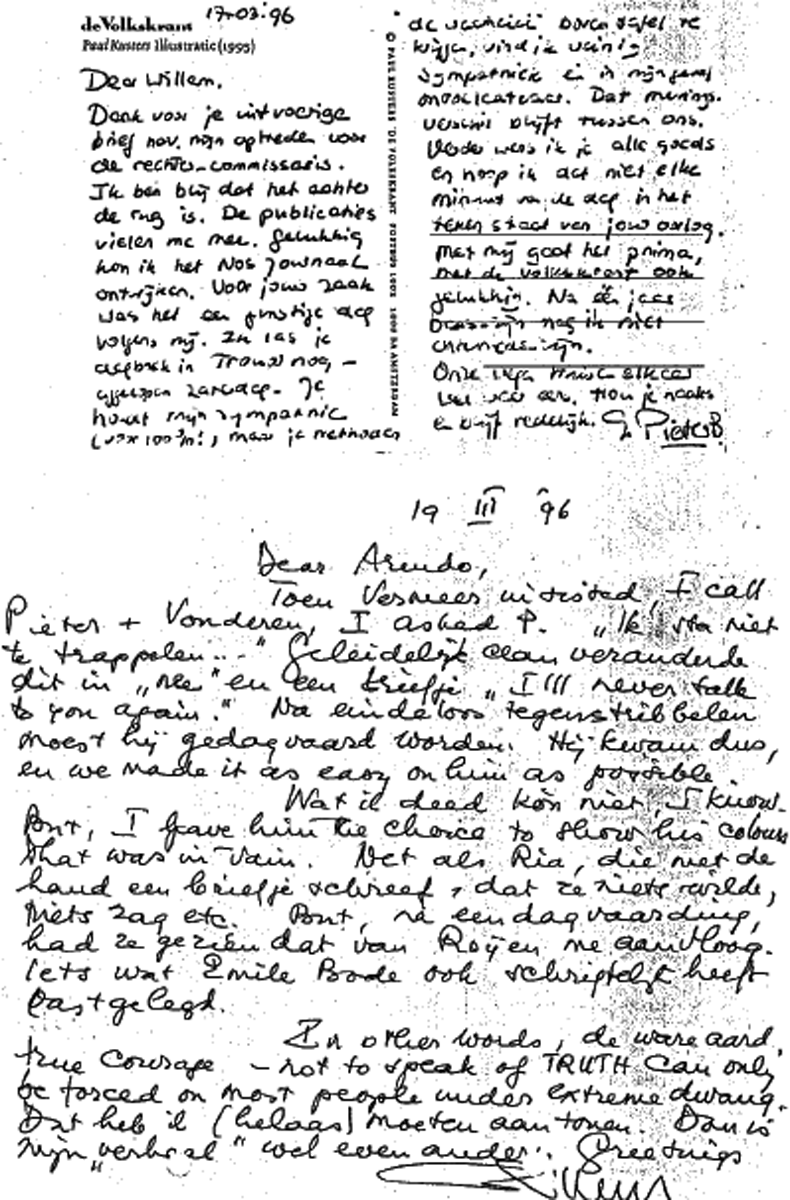 de Volkskrant 17-03-'96
Paul Kusters Illustratie (1995)
Dear Willem,
Dank voor je uitvoerige
brief nav. mijn optreden voor
de rechter-commissaris.
Ik ben blij dat het achter
de rug is. De publicaties
vielen me mee. Gelukkig
kon ik het NOS Journaal
ontwijken. Voor jouw zaak
was het een gunstige dag
volgens mij. Zu las je
dagboek in Trouw nog,
afgelopen zaterdag. Je
houdt mijn sympathie
(voor 100%!), maar je methodes
© PAUL KUSTERS DE VOLKSKRANT POSTBUS 1002 1000 BA AMSTERDAM
de boven tafel te
krijgen, vind ik weinig
sympathiek en in mijn geval
Dat menings-
verschil blijft tussen ons.
Verder wens ik je alle goeds
en hoop ik dat niet elke
minuut van de dag in het
teken staat van jouw oorlog.
Met mij gaat het prima,
met de Volkskrant ook
gelukkig. Na één jaar
mag ik niet
Onze elkaar
wel weer een. Hou je haaks
en blijf redelijk. G. Pieter B.
19 III '96
Dear Arendo,
Toen Vermeer insisted, I call
Pieter + Vonderen, I asked P. „Ik sta niet
te trappelen..." Geleidelijk aan veranderde
dit in „nee" en een briefje „I'll never talk
to you again." Na eindeloos tegenstribbelen
moest hij gedagvaard worden. Hij kwam dus,
en we made it as easy on him as possible.
Wat ik deed kon niet, I know.
But, I gave him the choice to show his colours
That was in vain. Net als Ria, die met de
hand een briefje schreef, dat ze niets wilde,
niets zag etc. But, na een dagvaarding,
had ze gezien dat van Royen me aanvloog.
Iets wat Emile Bode ook schriftelijk heeft
vastgelegd.
In other words, de ware aard,
true courage - not to speak of TRUTH can only
be forced on most people under extreme dwang.
Dat heb ik (helaas) moeten aantonen. Dan is
mijn „verhaal" wel even ander. Greetings
Willem